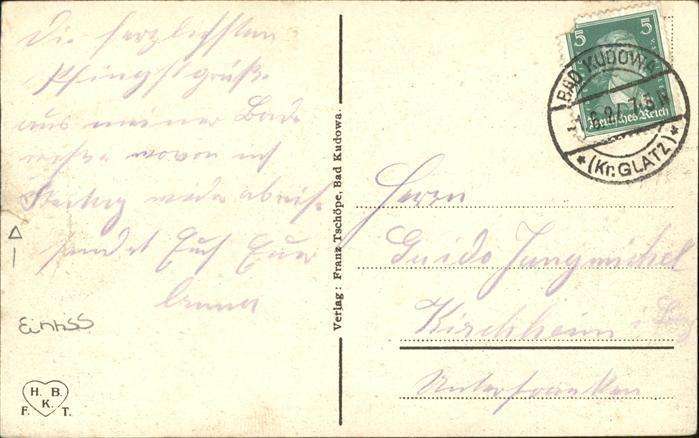 Die herzlichsten
Pfingstgrüße
aus meiner Bade
wovon ich
Freitag wieder abreise
sendet Euch Euer
Einriss
H. B.
K.
F. T.
Verlag: Franz Tschöpe, Bad Kudowa.
5 5
Deutsches Reich
BAD KUDOWA
* (Kr. GLATZ) *
Herrn
Guido Jungmichel
Kirchheim i.
Unterfranken